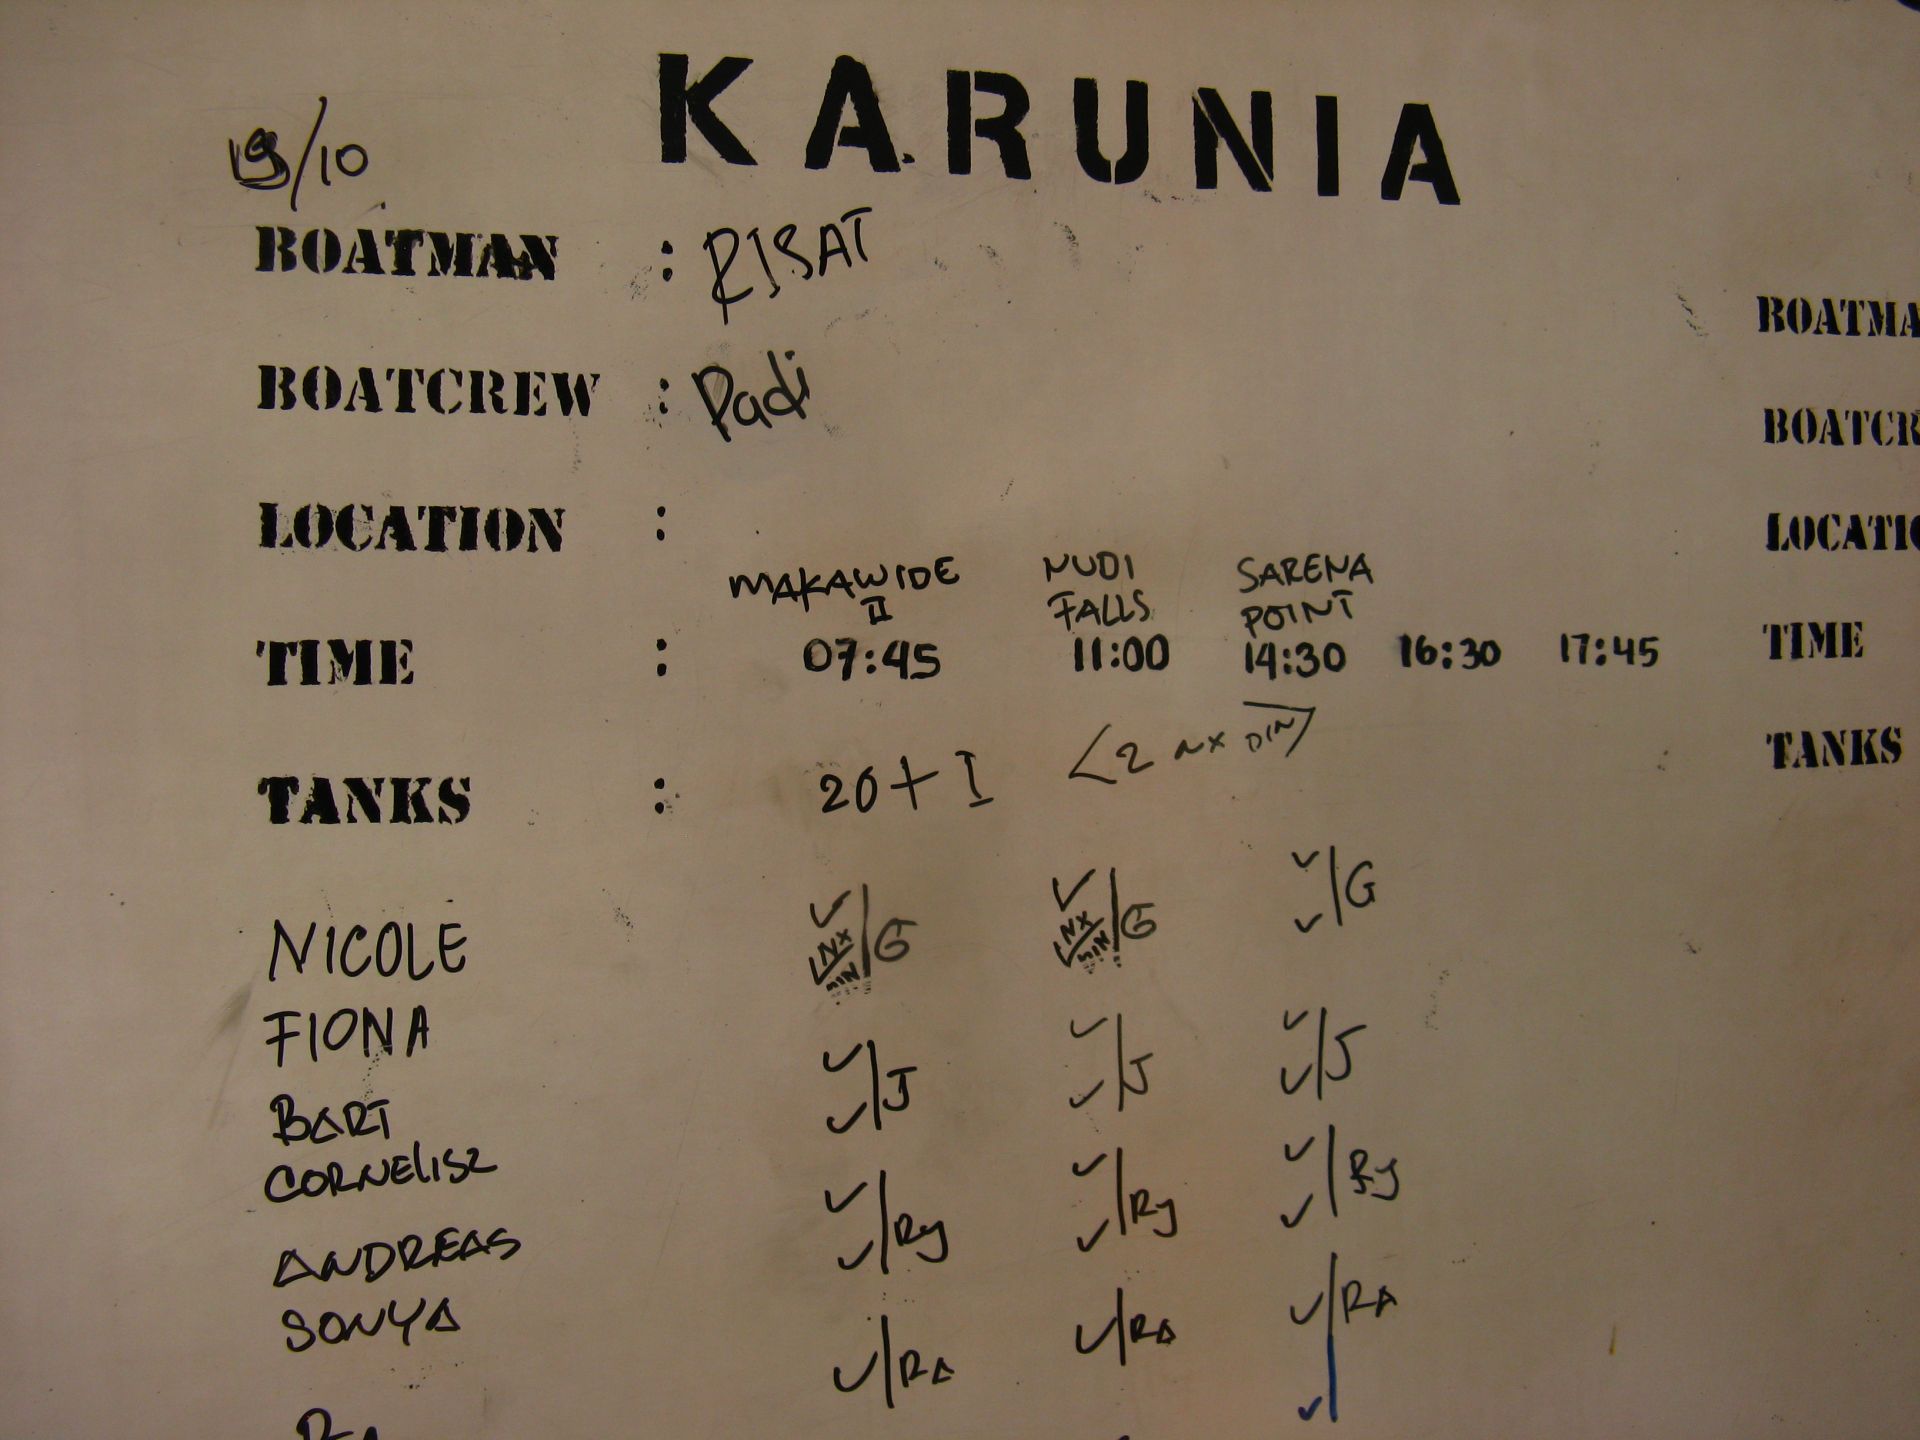 KARUNIA
19/10
BOATMAN : RISAT
BOATCREW : Padi
LOCATION :
MAKAWIDE II
NUDI FALLS
SARENA POINT
TIME : 07:45 11:00 14:30 16:30 17:45
TANKS : 20 + I <2 NX DIN>
NICOLE ✓ NX/MIN /G ✓ NX/MIN /G ✓✓/G
FIONA
BART ✓✓/J ✓✓/J ✓✓/J
CORNELISZ
ANDREAS ✓✓/Ry ✓✓/Ry ✓✓/Ry
SONYA
✓/RA ✓/RA ✓✓/RA
BOATMA
BOATCR
LOCATIO
TIME
TANKS